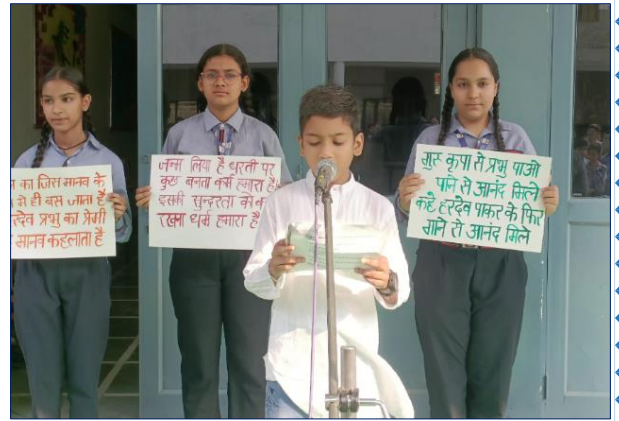 का जिस मानव के
से ही बस जाता है
रदेव प्रभु का प्रेमी
मानव कहलाता है
जन्म लिया है धरती पर
कुछ बनता कर्म हमारा है।
इसकी सुन्दरता को
रखना धर्म हमारा है
गुरु कृपा से प्रभु पाओ
पाने से आनंद मिले
कहे हरदेव पाकर के फिर
गाने से आनंद मिले